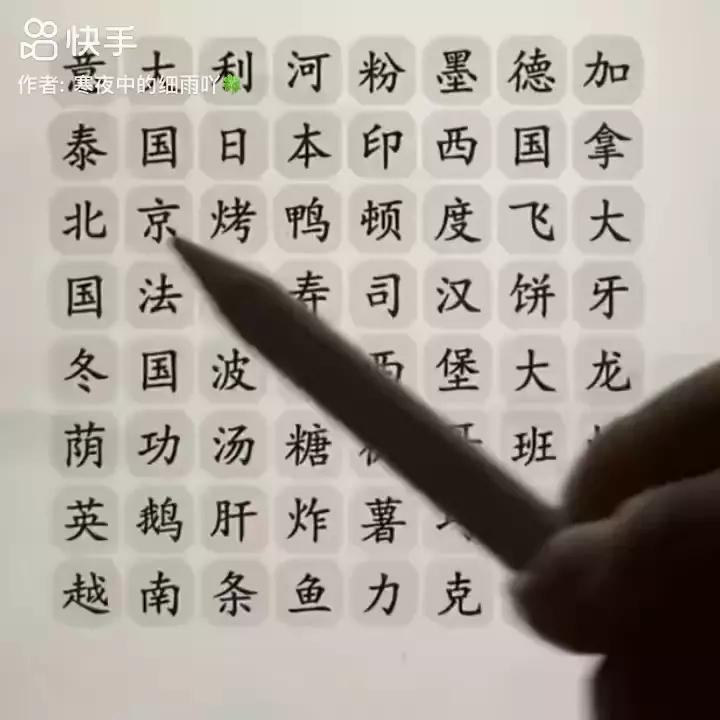 快手
作者: 寒夜中的细雨吖🍀
意大利河粉墨德加
泰国日本印西国拿
北京烤鸭顿度飞大
国法寿司汉饼牙
冬国波西堡大龙
荫功汤糖班
英鹅肝炸薯
越南条鱼力克